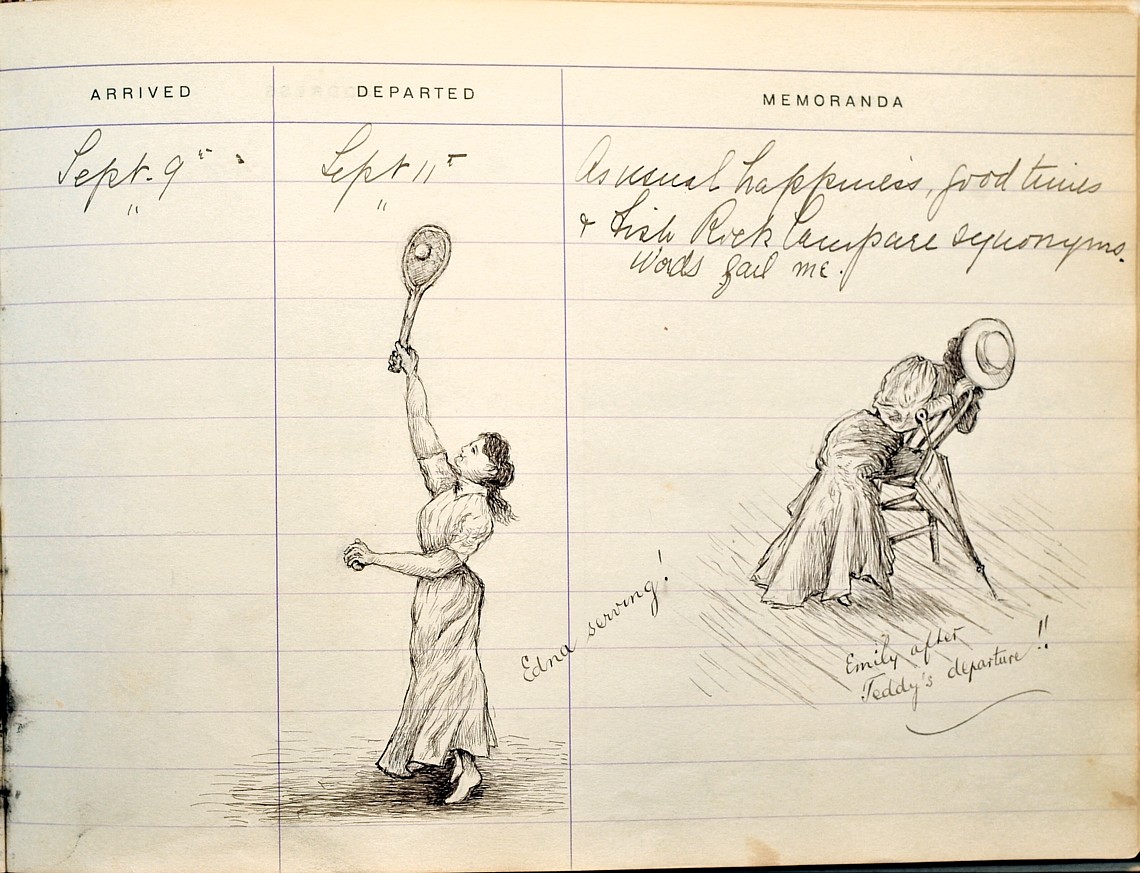 ARRIVED
DEPARTED
MEMORANDA
Sept. 9th
Sept 11th
" "
As usual happiness, good times
& Fish Rock Campare synonyms.
Wods fail me.
Edna serving!
Emily after
Teddy's departure!!